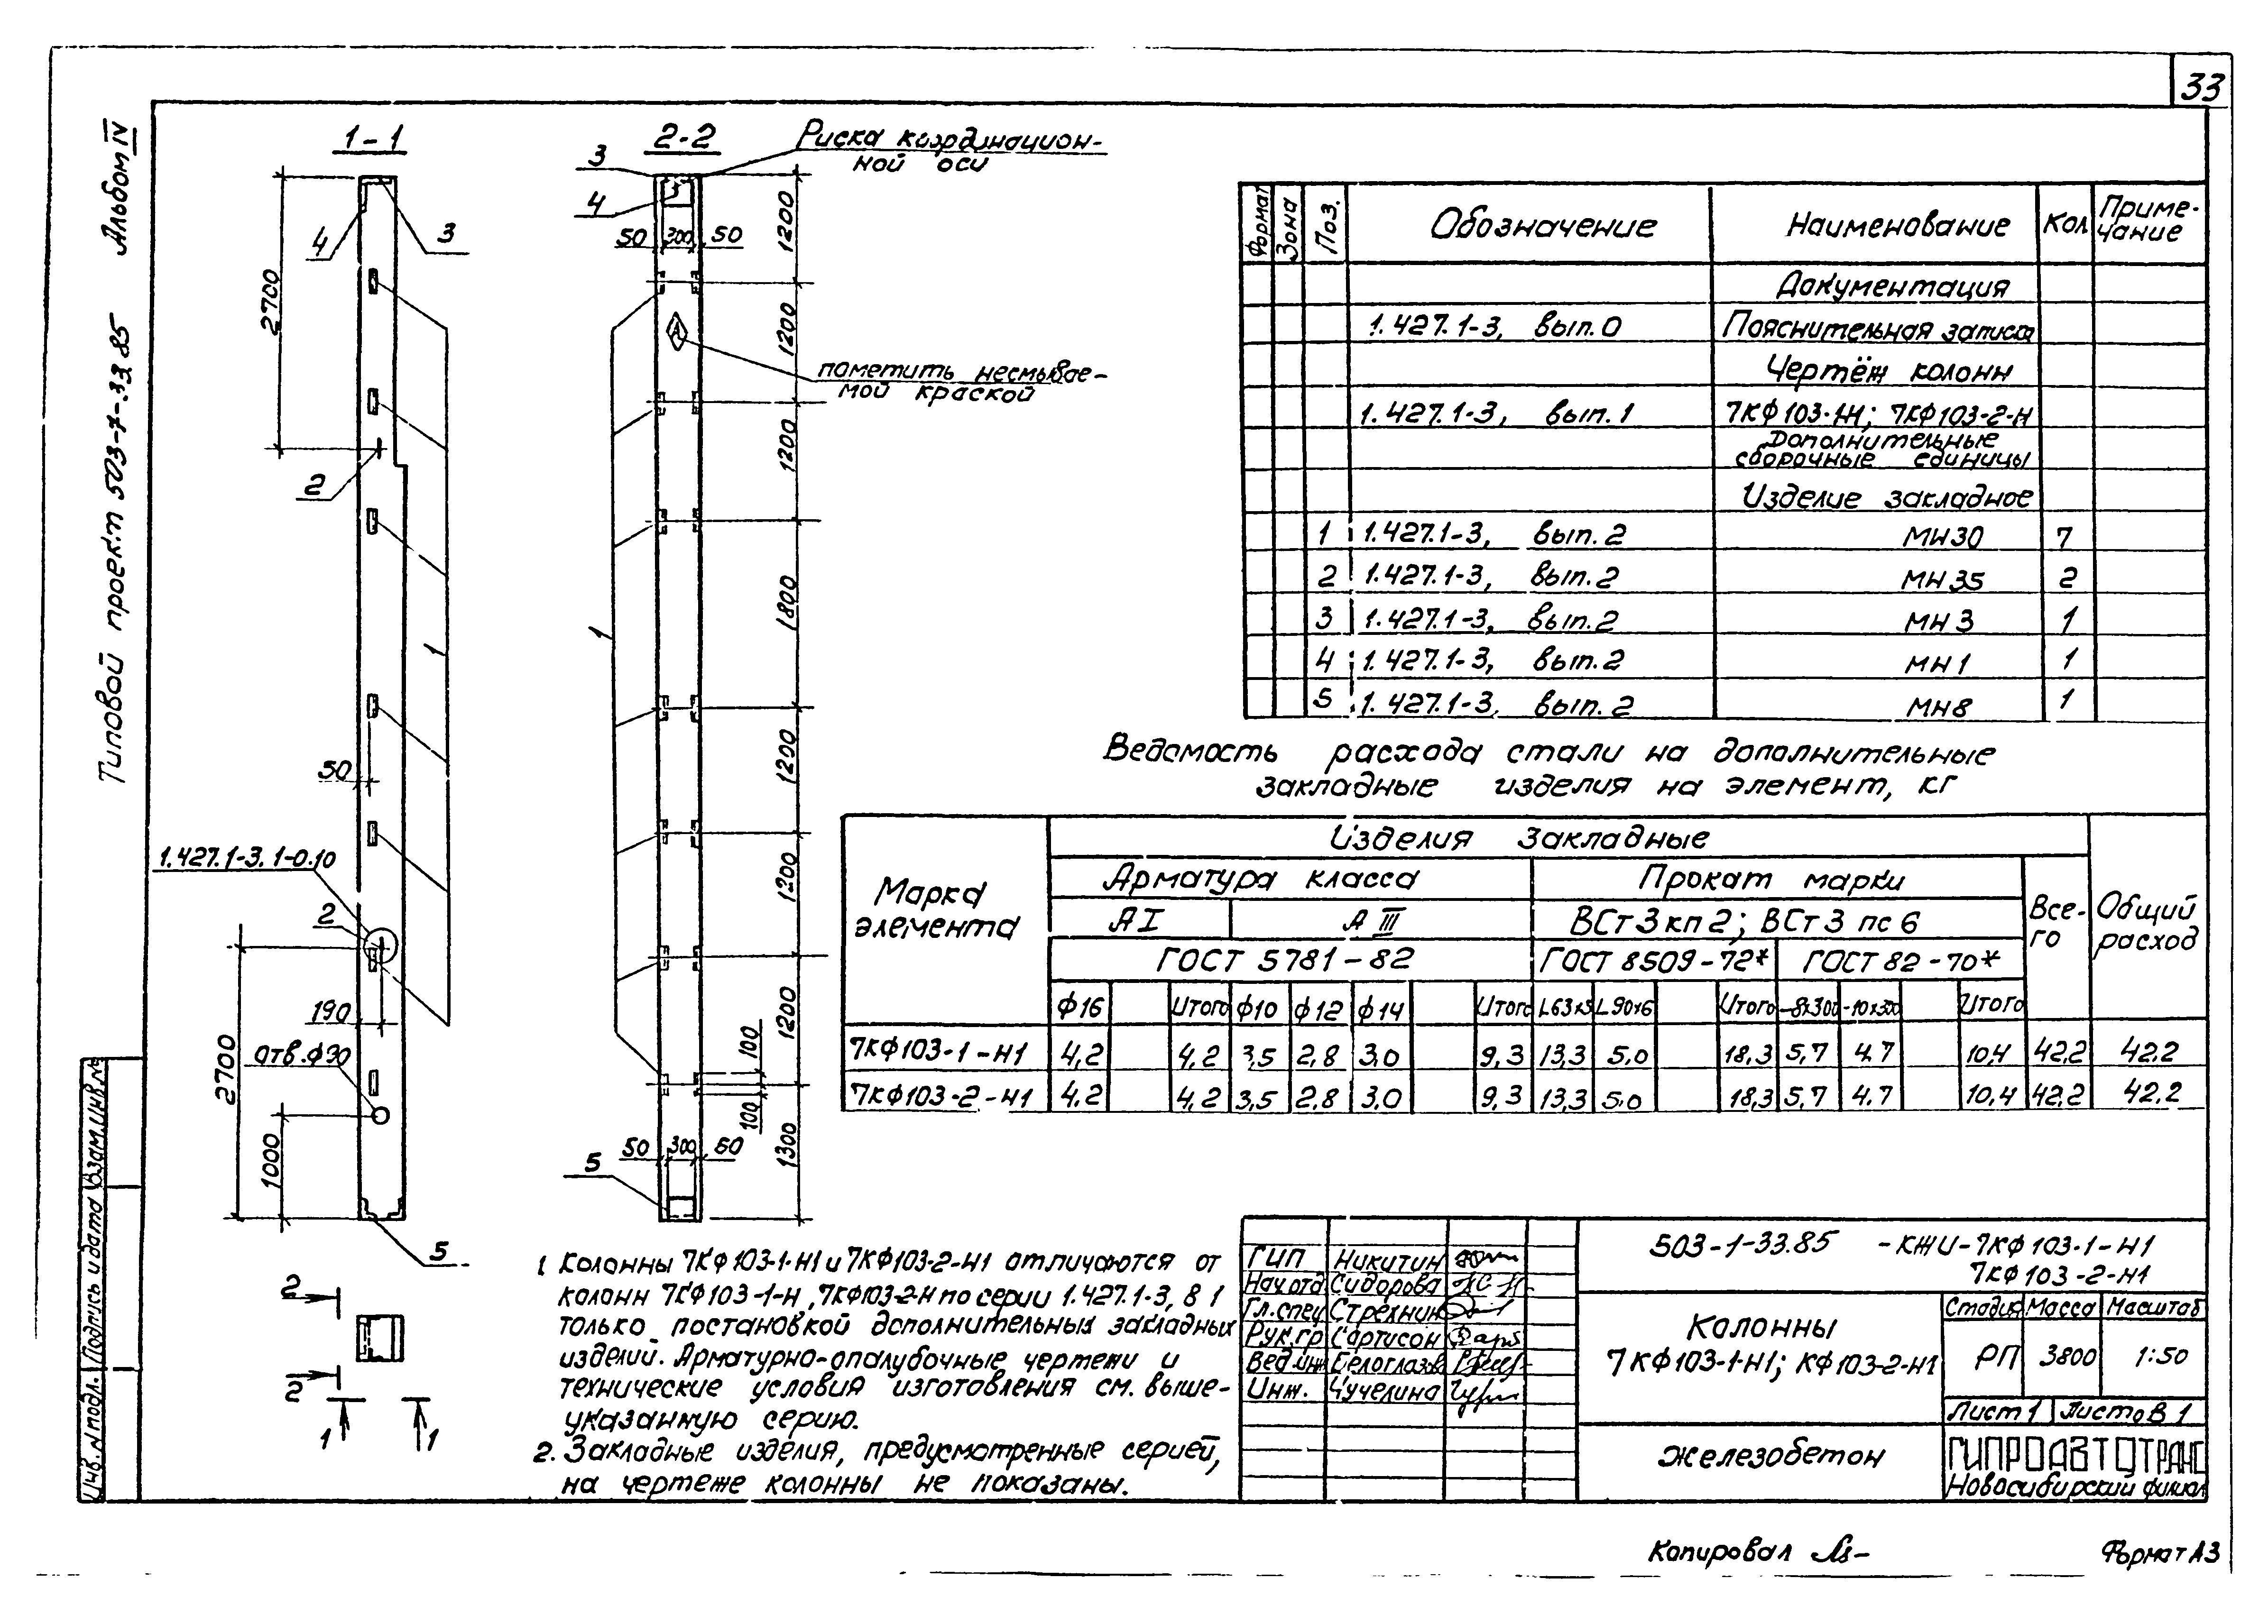 33
Альбом IV
Типовой проект 503-1-33.85
1-1
2-2
Риска координацион-
ной оси
3
4
4
3
50 300 50
2700
2
1200
1200
1200
1800
1200
1200
1200
1300
пометить несмывае-
мой краской
1
1
50
1.427.1-3.1-0.10
2
190
отв.ф30
2700
1000
100
100
50 300 50
5
5
2
2
1 1
Формат
Зона
Поз.
Обозначение
Наименование
Кол
Приме-
чание
Документация
1.427.1-3, вып.0 Пояснительная записка
Чертёж колонн
1.427.1-3, вып.1 7КФ103-1-Н; 7КФ103-2-Н
Дополнительные
сборочные единицы
Изделие закладное
1 1.427.1-3, вып.2 МН30 7
2 1.427.1-3, вып.2 МН35 2
3 1.427.1-3, вып.2 МН3 1
4 1.427.1-3, вып.2 МН1 1
5 1.427.1-3, вып.2 МН8 1
Ведомость расхода стали на дополнительные
закладные изделия на элемент, кг
Марка
элемента
Изделия закладные
Арматура класса
Прокат марки
Все-
го
Общий
расход
А I
А III
ВСт3кп2; ВСт3 пс6
ГОСТ 5781-82
ГОСТ 8509-72*
ГОСТ 82-70*
ф16 Итого ф10 ф12 ф14 Итого L63х5 L90х6 Итого -8х300 -10х300 Итого
7КФ103-1-Н1 4,2 4,2 3,5 2,8 3,0 9,3 13,3 5,0 18,3 5,7 4,7 10,4 42,2 42,2
7КФ103-2-Н1 4,2 4,2 3,5 2,8 3,0 9,3 13,3 5,0 18,3 5,7 4,7 10,4 42,2 42,2
1. Колонны 7КФ103-1-Н1 и 7КФ103-2-Н1 отличаются от
колонн 7КФ103-1-Н, 7КФ103-2-Н по серии 1.427.1-3, В 1
только постановкой дополнительных закладных
изделий. Арматурно-опалубочные чертежи и
технические условия изготовления см. выше-
указанную серию.
2. Закладные изделия, предусмотренные серией,
на чертеже колонны не показаны.
ГИП Никитин
Нач.отд Сидорова
Гл.спец Стрехнин
Рук.гр Сартисон
Вед.инж Белоглазов
Инж. Чучелина
503-1-33.85 -КЖИ-7КФ103-1-Н1
7КФ103-2-Н1
Колонны
7КФ103-1-Н1; КФ103-2-Н1
Стадия Масса Масштаб
РП 3800 1:50
Лист 1 Листов 1
железобетон
ГИПРОАВТОТРАНС
Новосибирский филиал
Инв.N подл.
Подпись и дата
Взам.инв.№
Копировал
Формат А3